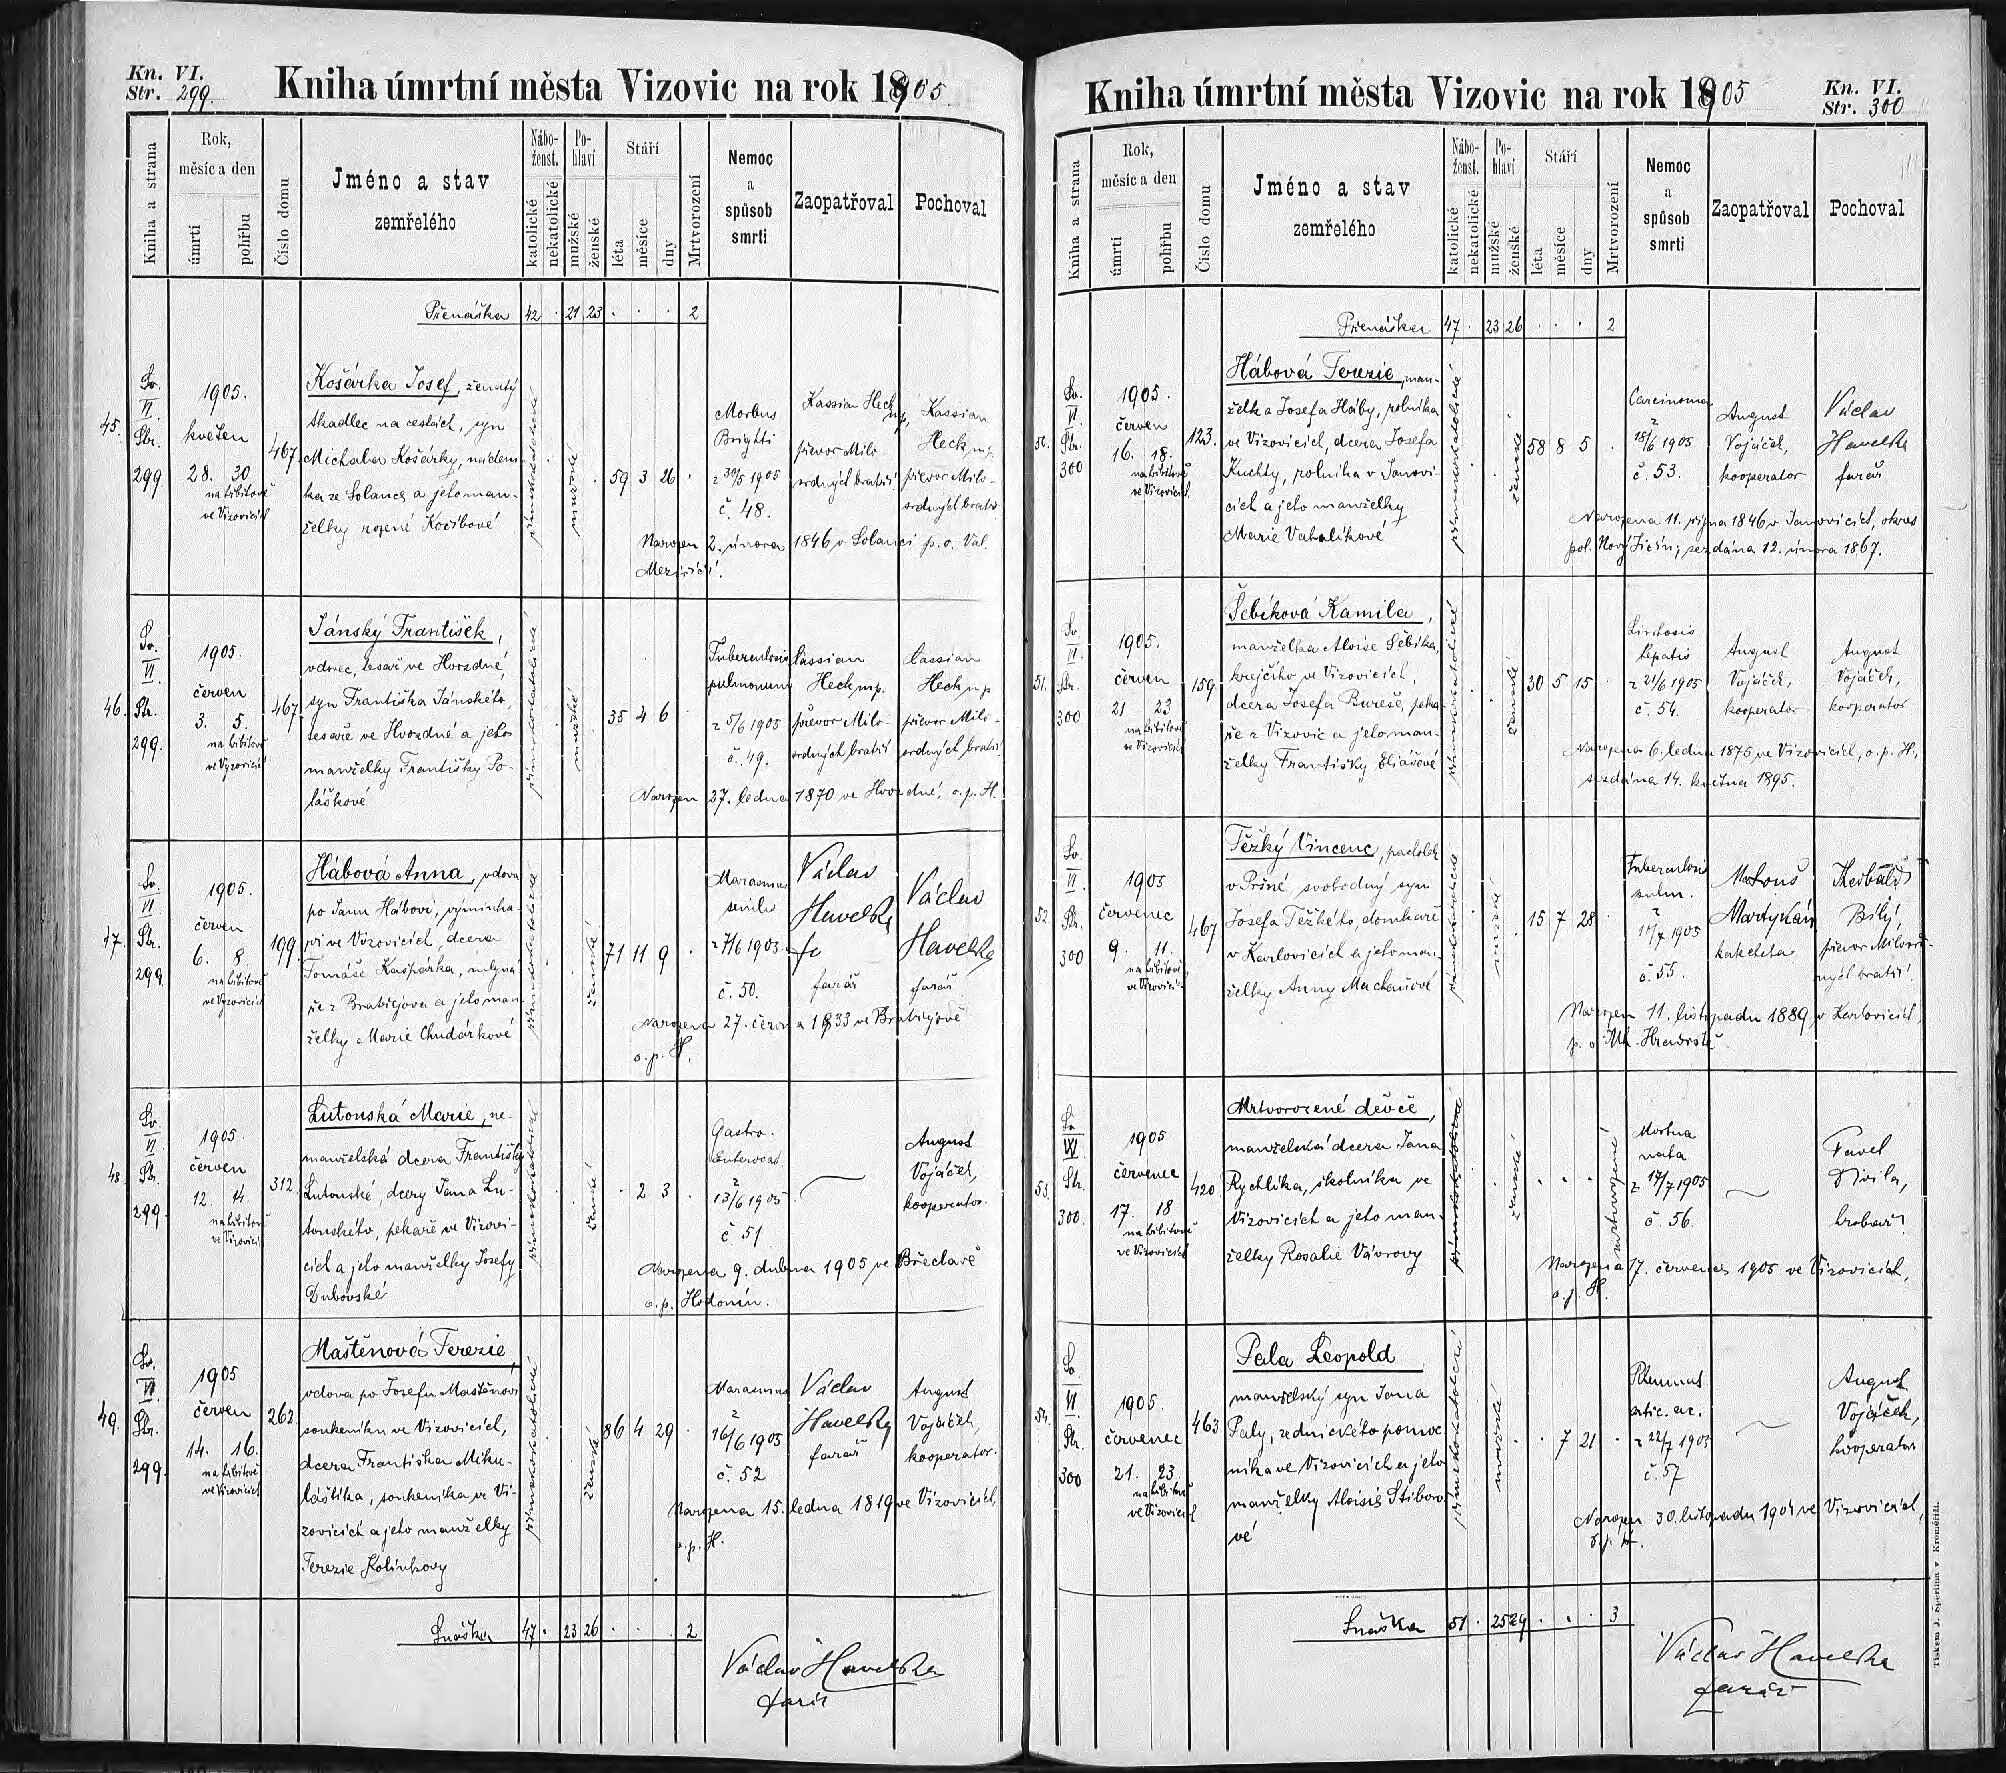 Kn. VI.
Str. 299.
Kniha úmrtní města Vizovic na rok 1905
Kniha a strana
Rok,
měsíc a den
úmrtí
pohřbu
Číslo domu
Jméno a stav
zemřelého
Nábo-
ženst.
katolické
nekatolické
Po-
hlaví
mužské
ženské
Stáří
léta
měsíce
dny
Mrtvorození
Nemoc
a
spůsob
smrti
Zaopatřoval
Pochoval
Přenáška 42 . 21 23 . . . 2
45.
Sv.
VI.
Str.
299
1905.
květen
28. 30
na hřbitově
ve Vizovicích
467
Košárka Josef, ženatý
tkadlec na cestách, syn
Michala Košárky, nadem-
ka ze Solance a jeho man-
želky rozené Kocíbové
římskokatolické
mužské
59 3 26
Morbus
Brighti
z 30/5 1905
č. 48.
Kassian Heck
mp.
převor Milo-
srdných bratří
Kassian
Heck mp.
převor Milo-
srdných bratří
Narozen 2. února 1846 v Solanci p. o. Val.
Meziříčí.
46.
Sv.
VI.
Str.
299.
1905.
červen
3. 5.
na hřbitově
ve Vyzovicích
467
Jánský František,
vdovec, tesař ve Hvozdné,
syn Františka Jánského,
tesaře ve Hvozdné a jeho
manželky Františky Po-
láškové
římskokatolické
mužské
35 4 6
Tuberculosis
pulmonum
z 5/6 1905
č. 49.
Cassian
Heck mp.
převor Milo-
srdných bratří
Cassian
Heck mp
převor Milo-
srdných bratří
Narozen 27. ledna 1870 ve Hvozdné, o. p. H.
47.
Sv.
VI.
Str.
299.
1905.
červen
6. 8.
na hřbitově
ve Vyzovicích
199.
Hábová Anna, vdova
po Janu Hábovi, výminka-
ři ve Vizovicích, dcera
Tomáše Kašpárka, mlyná-
ře z Bratřejova a jeho man-
želky Marie Chudárkové
římskokatolické
ženské
71 11 9
Marasmus
senilis
z 7/6 1905
č. 50.
Václav
Havelka
farář
Václav
Havelka
farář
Narozena 27. června 1833 ve Bratřejově
o. p. H.
48.
Sv.
VI.
Str.
299.
1905.
červen
12. 14.
na hřbitově
ve Vizovicích
312.
Lutonská Marie, ne-
manželská dcera Františky
Lutonské, dcery Jana Lu-
tonského, pekaře ve Vizovi-
cích a jeho manželky Josefy
Dubovské
římskokatolické
ženské
. 2 3
Gastro-
enterocat.
z
13/6 1905
č. 51
August
Vojáček,
kooperator.
Narozena 9. dubna 1905 ve Břeclavě
o. p. Hodonín.
49.
Sv.
VI
Str.
299.
1905
červen
14. 16.
na hřbitově
ve Vizovicích
262.
Maštěnová Terezie,
vdova po Josefu Maštěnovi
soukeníku ve Vizovicích,
dcera Františka Miku-
láštíka, soukeníka ve Vi-
zovicích a jeho manželky
Terezie Kolínkovy
římskokatolické
ženské
86 4 29
Marasmus
z
16/6 1905
č. 52
Václav
Havelka
farář
August
Vojáček,
kooperator.
Narozena 15. ledna 1819 ve Vizovicích,
o. p. H.
Snáška 47 . 23 26 . . . 2
Václav Havelka
farář
Kniha úmrtní města Vizovic na rok 1905
Kn. VI.
Str. 300
Kniha a strana
Rok,
měsíc a den
úmrtí
pohřbu
Číslo domu
Jméno a stav
zemřelého
Nábo-
ženst.
katolické
nekatolické
Po-
hlaví
mužské
ženské
Stáří
léta
měsíce
dny
Mrtvorození
Nemoc
a
spůsob
smrti
Zaopatřoval
Pochoval
Přenáška 47 . 23 26 . . . 2
50.
Sv.
VI
Str.
300
1905.
červen
16. 18.
na hřbitově
ve Vizovicích
123.
Hábová Terezie, man-
želka Josefa Háby, rolníka
ve Vizovicích, dcera Josefa
Kuchty, rolníka v Janovi-
cích a jeho manželky
Marie Vahalíkové
římskokatolické
ženské
58 8 5
Carcinoma
z
18/6 1905
č. 53.
August
Vojáček,
kooperator
Václav
Havelka
farář
Narozena 11. října 1846 v Janovicích, okres
pol. Nový Jičín; sezdána 12. února 1867.
51.
Sv.
VI.
Str.
300
1905.
červen
21 23
na hřbitově
ve Vizovicích
159.
Šebíková Kamila,
manželka Aloise Šebíka,
krejčího ve Vizovicích,
dcera Josefa Bureše, peka-
ře z Vizovic a jeho man-
želky Františky Eliášové
římskokatolické
ženské
30 5 15
Cirrhosis
hepatis
z 21/6 1905
č. 54.
August
Vojáček,
kooperator
August
Vojáček,
kooperator
Narozena 6. ledna 1875 ve Vizovicích, o. p. H,
sezdána 14. května 1895.
52
Sv.
VI.
Str.
300
1905
červenec
9. 11.
na hřbitově
ve Vizovicích
467
Těžký Vincenc, pacholek
v Pržné svobodný syn
Josefa Těžkého, domkaře
v Karlovicích a jeho man-
želky Anny Machaňové
římskokatolické
mužské
15 7 28
Tuberculosis
pulm.
z
10/7 1905
č. 55.
Matouš
Martykán
katecheta
Theobald
Bílý,
převor Milosrd-
ných bratří
Narozen 11. listopadu 1889 v Karlovicích,
p. o. Uh. Hradiště
53.
Sv.
VI
Str.
300.
1905
červenec
17. 18
na hřbitově
ve Vizovicích
420
Mrtvorozené děvče,
manželská dcera Jana
Rychlíka, školníka ve
Vizovicích a jeho man-
želky Rosalie Vávrovy
římskokatolické
ženské
. . .
mrtvorozené
Mortua
nata
z 17/7 1905
č. 56.
Pavel
Divila,
hrobař
Narozena 17. července 1905 ve Vizovicích,
o. p. H.
54.
Sv.
VI
Str.
300
1905.
červenec
21. 23.
na hřbitově
ve Vizovicích
463
Pala Leopold
manželský syn Jana
Paly, zednického pomoc-
níka ve Vizovicích a jeho
manželky Aloisie Stiboro-
vé
římskokatolické
mužské
. 7 21
Rheumat
artic. ac.
z 22/7 1905
č. 57
August
Vojáček,
kooperator
Narozen 30. listopadu 1904 ve Vizovicích,
o. p. H.
Snáška 51 . 25 29 . . . 3
Václav Havelka
farář
Tiskem J. Šperlina v Kroměříži.